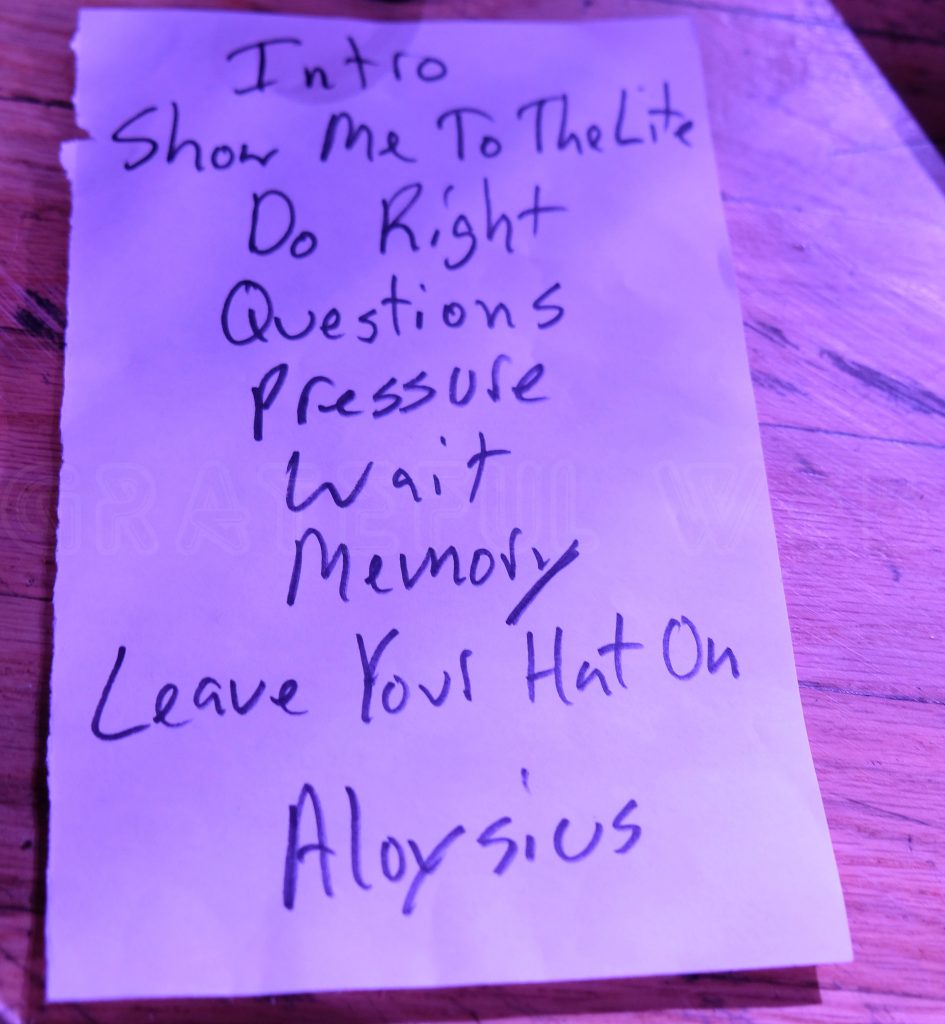 Intro
Show Me To The Lite
Do Right
Questions
Pressure
Wait
Memory
Leave Your Hat On
Aloysius
GRATEFUL WEB